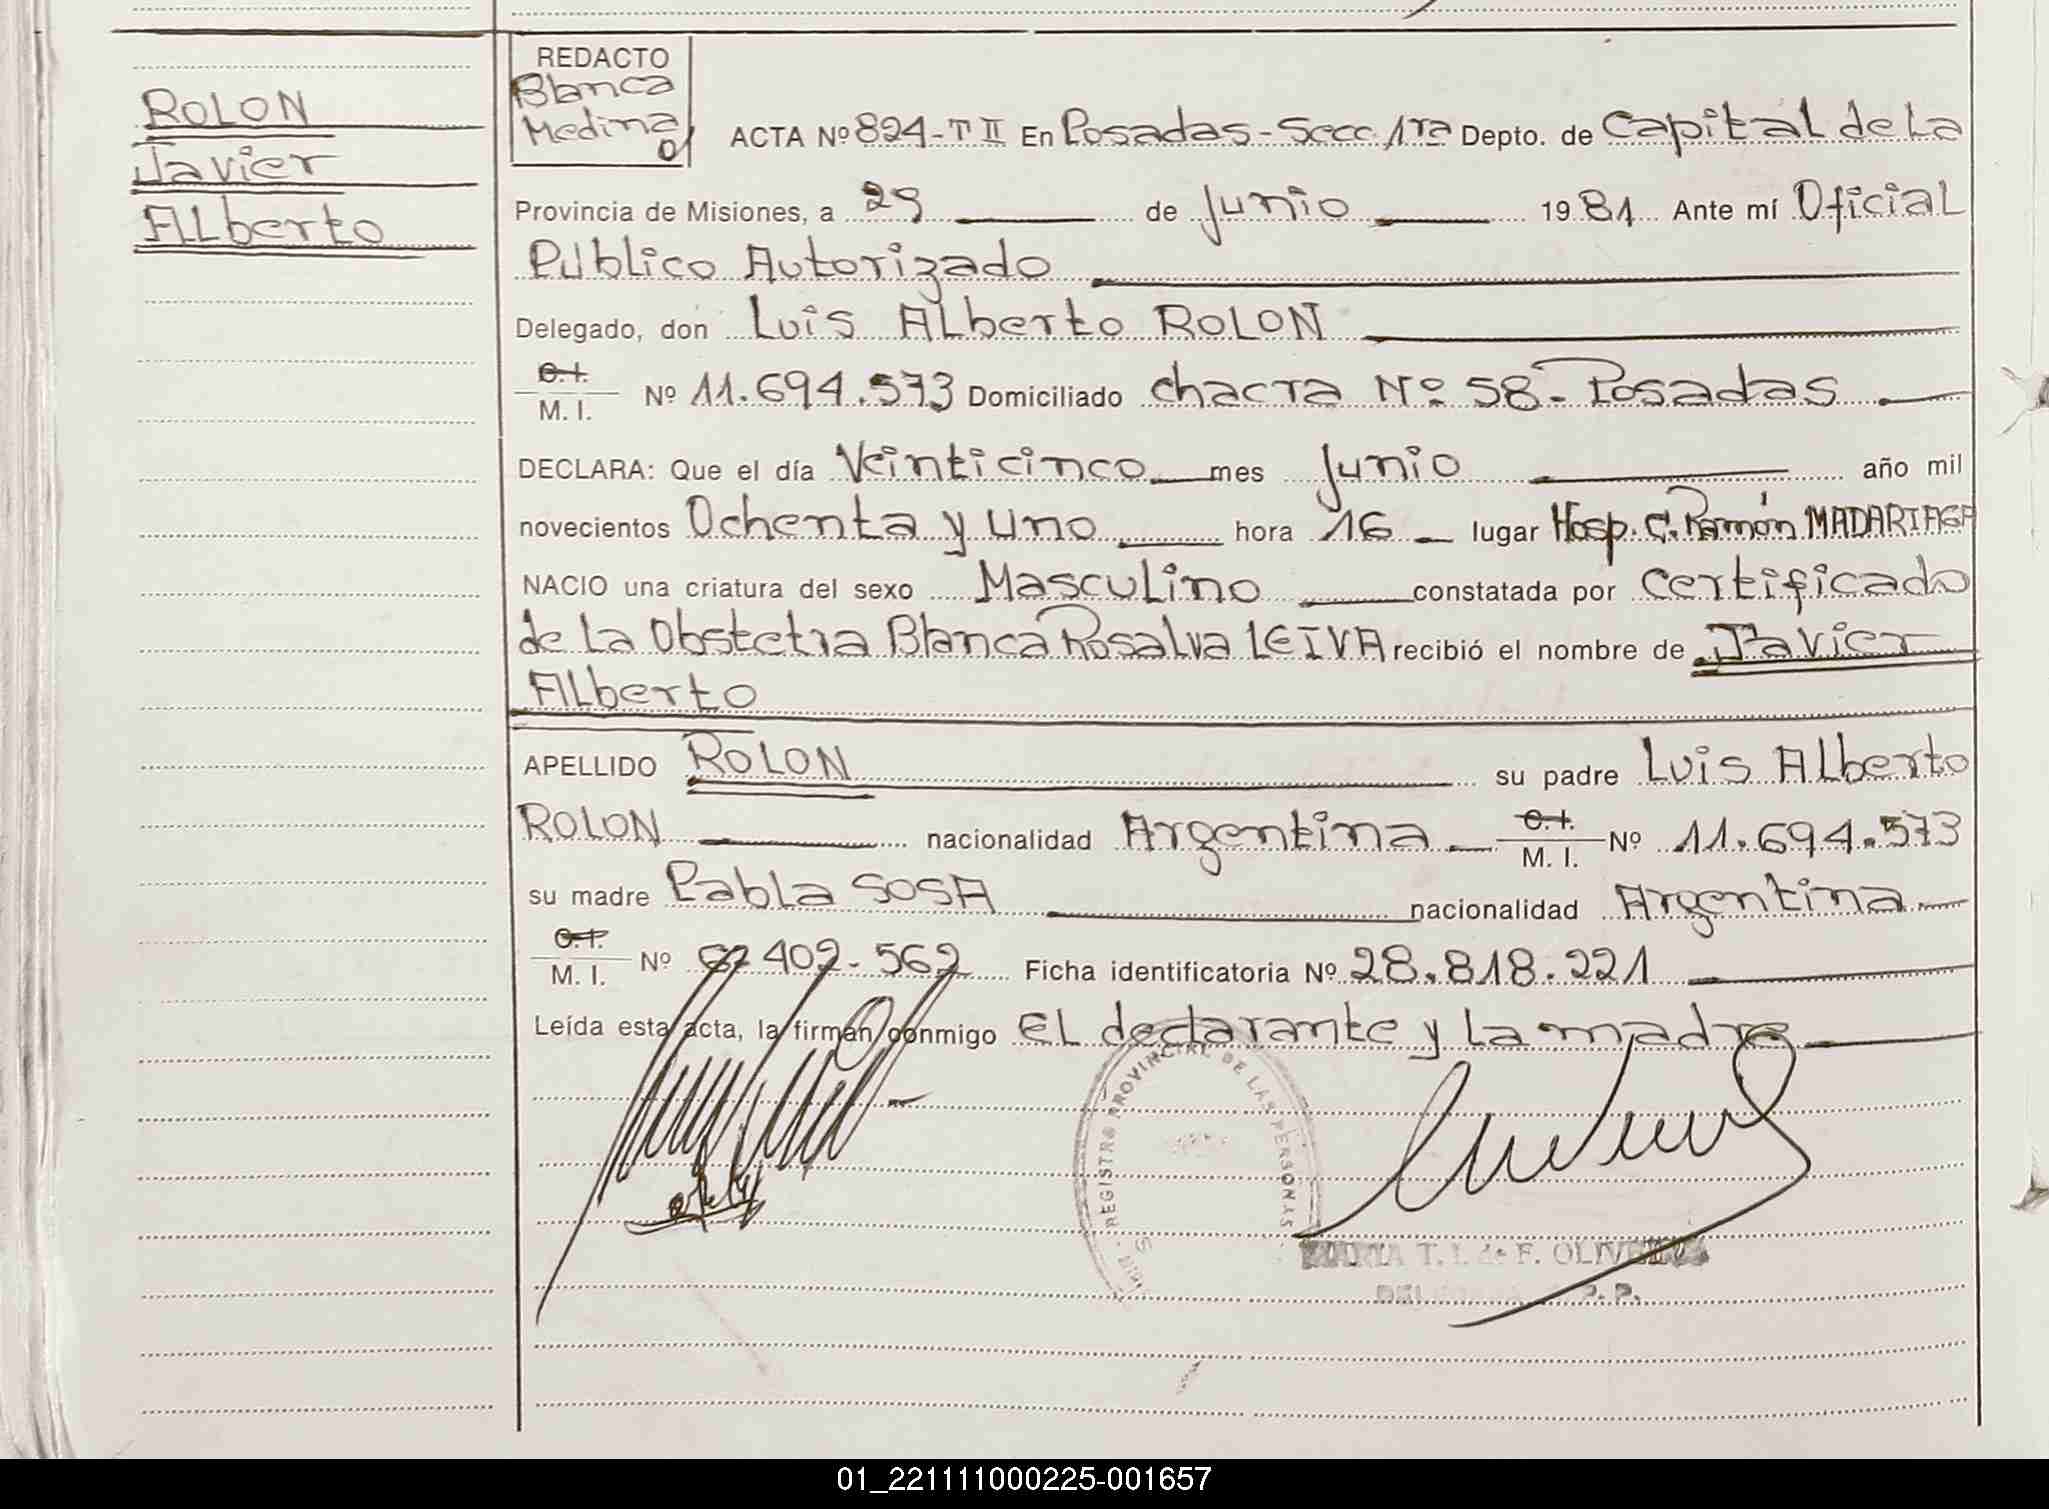 REDACTO
Blanca
Medina
ROLON
Javier
Alberto
ACTA Nº 824-T II En Posadas-Secc. 1ra Depto. de Capital de La
Provincia de Misiones, a 29 de Junio 1981 Ante mí Oficial
Público Autorizado
Delegado, don Luis Alberto ROLON
C.I.
M. I. Nº 11.694.573 Domiciliado chacra Nº 58-Posadas
DECLARA: Que el día Veinticinco mes Junio año mil
novecientos Ochenta y uno hora 16 lugar Hosp. C. Ramón MADARIAGA
NACIO una criatura del sexo Masculino constatada por certificado
de La Obstetra Blanca Rosalva LEIVA recibió el nombre de Javier
Alberto
APELLIDO ROLON su padre Luis Alberto
ROLON nacionalidad Argentina C.I.
M. I. Nº 11.694.573
su madre Pabla SOSA nacionalidad Argentina
C.I.
M. I. Nº 402-562 Ficha identificatoria Nº 28.818.221
Leída esta acta, la firman conmigo EL declarante y La madre
REGISTRO PROVINCIAL DE LAS PERSONAS
MARIA T. I. de F. OLIVEIRA
01_221111000225-001657